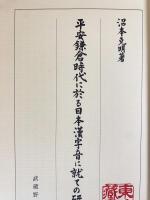 沼本克明著
平安鎌倉時代に於る日本漢字音に就ての研
武蔵野